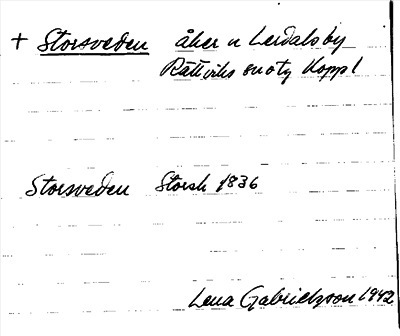 + Storsveden åker n Lerdalsby
Rättviks sn oty Koppl
Storsveden Storsk 1836
Lena Gabrielsson 1942